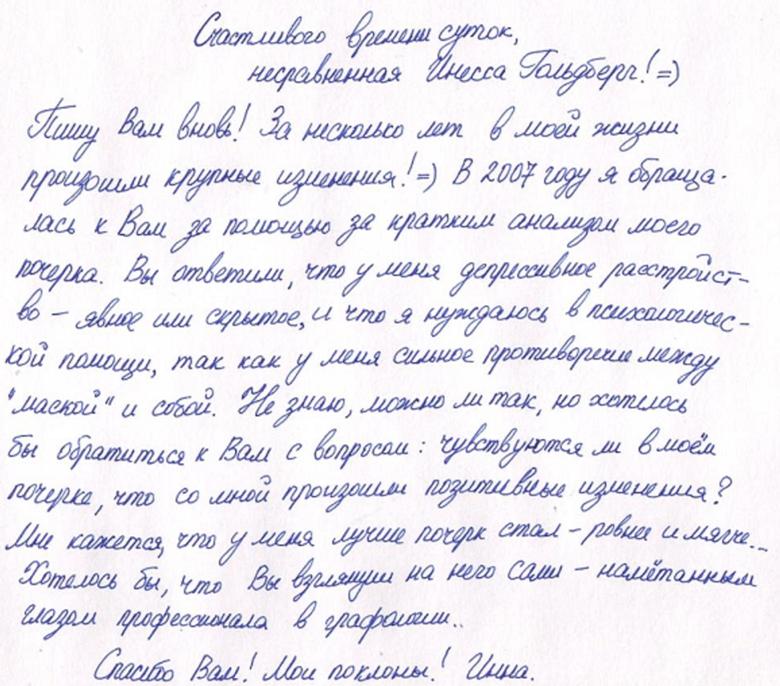 Счастливого времени суток,
несравненная Инесса Гольдберг! =)
Пишу Вам вновь! За несколько лет в моей жизни
произошли крупные изменения! =) В 2007 году я обраща-
лась к Вам за помощью за кратким анализом моего
почерка. Вы ответили, что у меня депрессивное расстройст-
во – явное или скрытое, и что я нуждаюсь в психологичес-
кой помощи, так как у меня сильное противоречие между
"маской" и собой. Не знаю, можно ли так, но хотелось
бы обратиться к Вам с вопросом: чувствуются ли в моём
почерке, что со мной произошли позитивные изменения?
Мне кажется, что у меня лучше почерк стал – ровнее и мягче...
Хотелось бы, что Вы взглянули на него сами – намётанным
глазом профессионала в графологии..
Спасибо Вам! Мои поклоны! Инна.